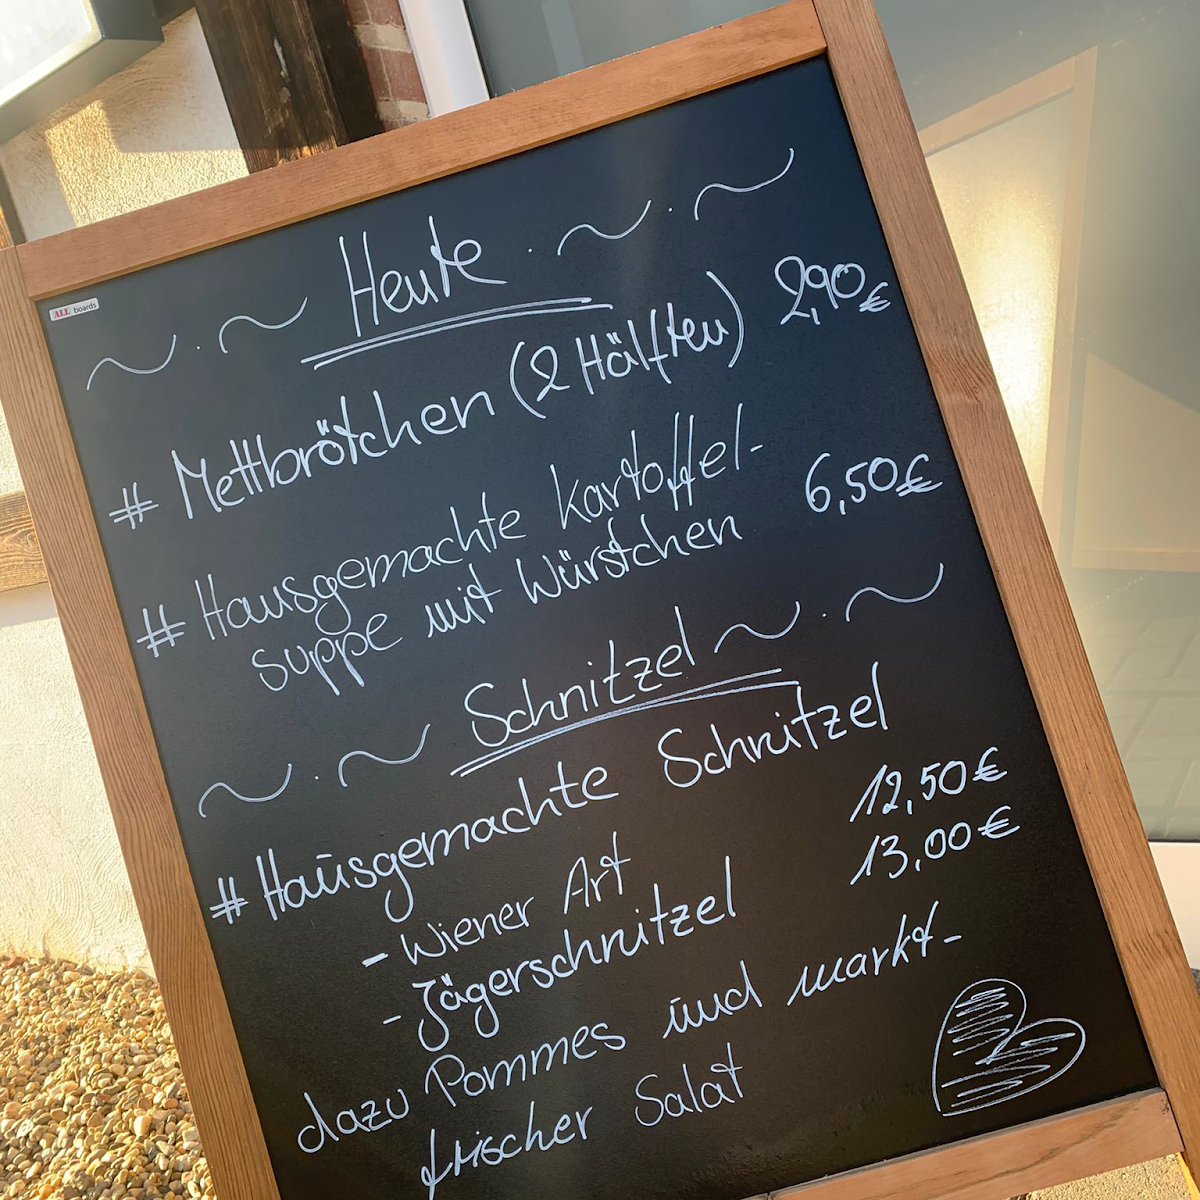 ALL boards
Heute
# Mettbrötchen (2 Hälften) 2,90€
# Hausgemachte Kartoffel-
suppe mit Würstchen 6,50€
Schnitzel
# Hausgemachte Schnitzel
- Wiener Art 12,50€
- Jägerschnitzel 13,00€
dazu Pommes und markt-
frischer Salat